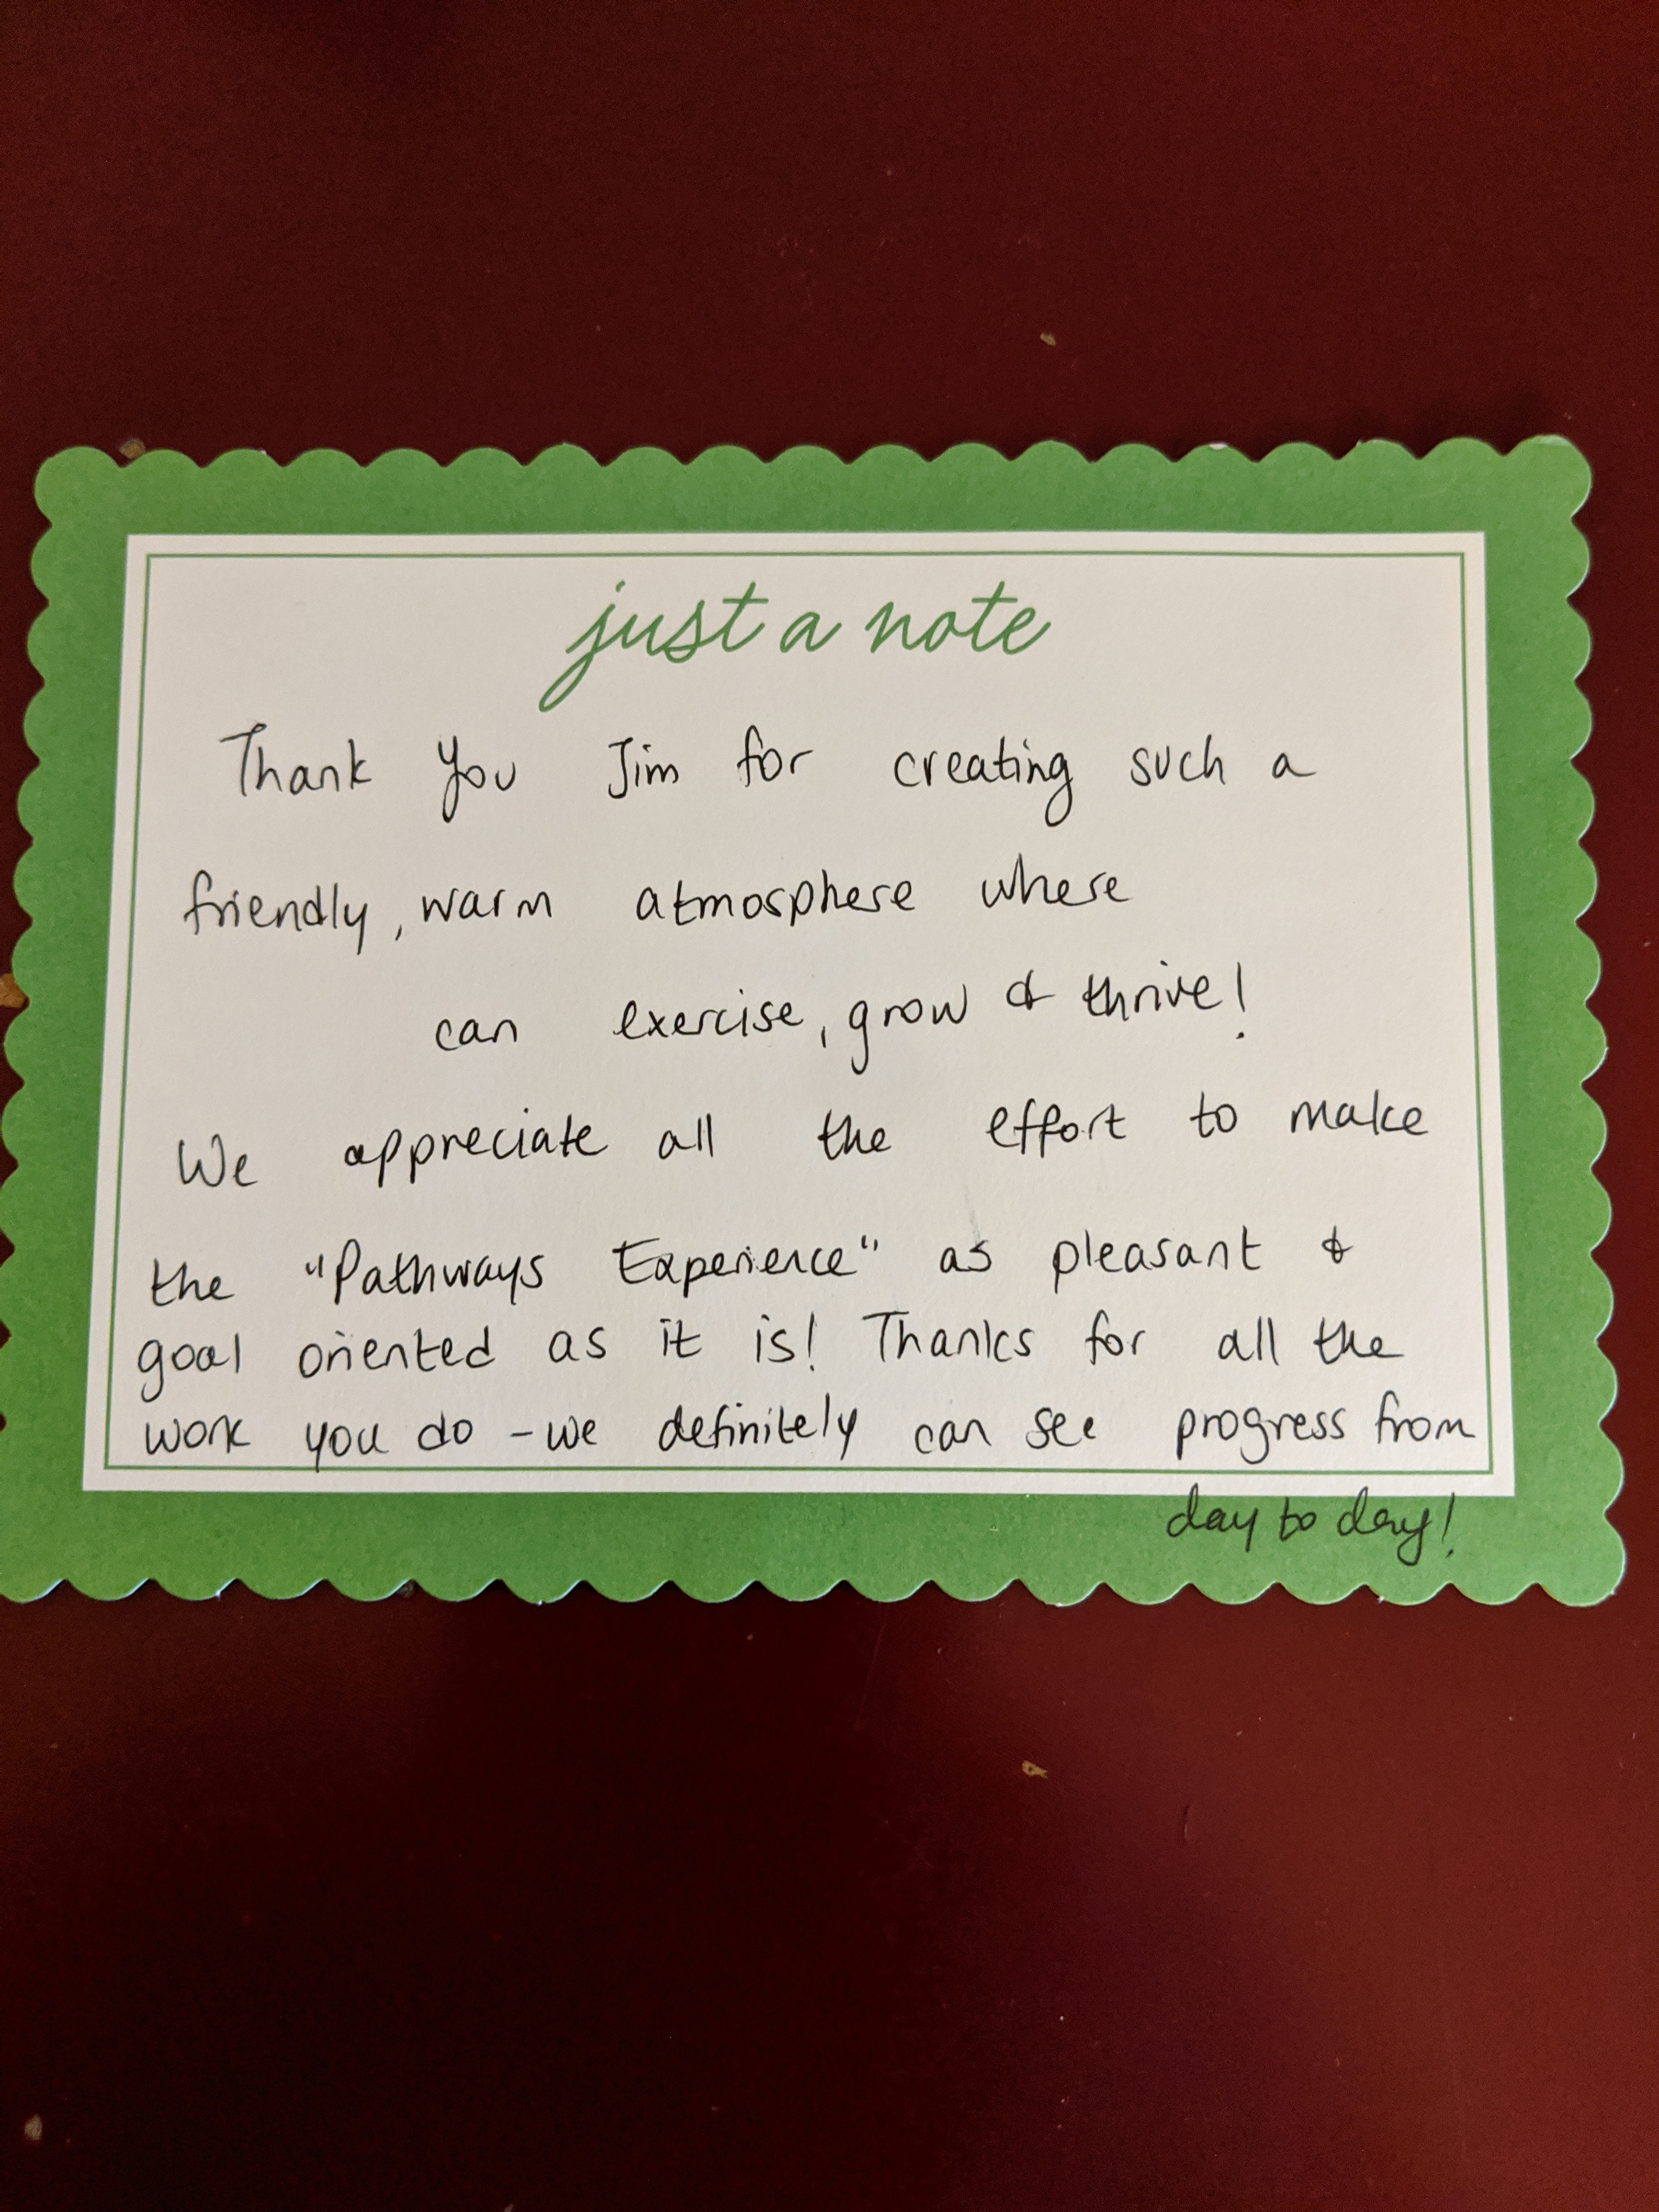 just a note
Thank You Jim for creating such a
friendly, warm atmosphere where
can exercise, grow & thrive!
We appreciate all the effort to make
the "Pathways Experience" as pleasant &
goal oriented as it is! Thanks for all the
work you do - we definitely can see progress from
day to day!